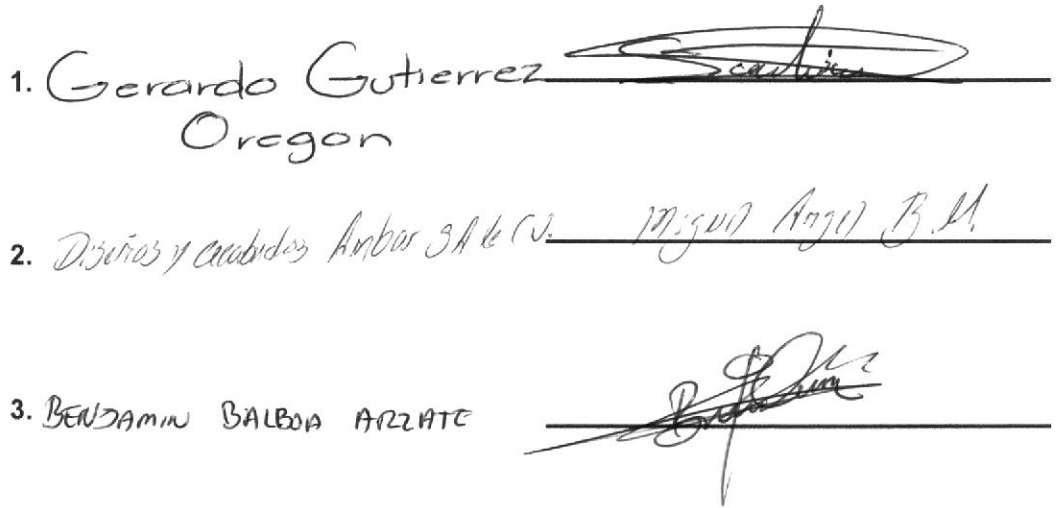 1. Gerardo Gutierrez
Oregon
2. Diseños y acabados Ambar SA de CV. Miguel Angel B.M.
3. BENJAMIN BALBOA ARZATE